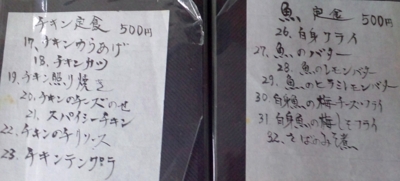 チキン定食 500円
17. チキンからあげ
18. チキンカツ
19. チキン照り焼き
20. チキンのチーズのせ
21. スパイシーチキン
22. チキンのチリソース
23. チキンテンプラ
魚 定食 500円
26. 白身フライ
27. 魚のバター
28. 魚のレモンバター
29. 魚のピカタレモンバター
30. 白身魚の梅チーズフライ
31. 白身魚の梅しそフライ
32. さばのみそ煮